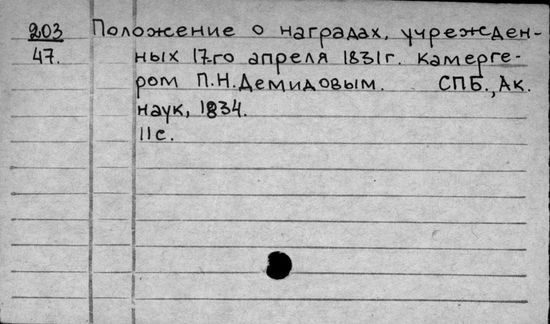 203 Положение о наградах, учрежден-
47. ных 17-го апреля 1831 г. камерге-
ром П.Н.Демидовым. СПБ., Ак.
наук, 1834.
11 с.